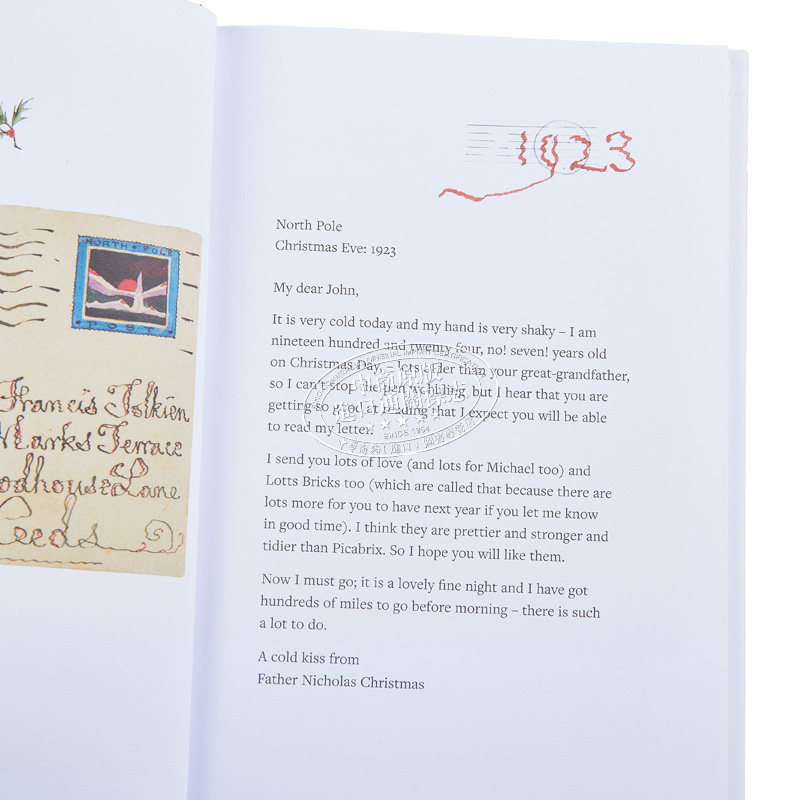 NORTH · POLE
· POST ·
Francis Tolkien
Marks Terrace
odhouse Lane
Leeds
5
1923
North Pole
Christmas Eve: 1923
My dear John,
It is very cold today and my hand is very shaky – I am
nineteen hundred and twenty four, no! seven! years old
on Christmas Day, – lots older than your great-grandfather,
so I can't stop the pen wobbling, but I hear that you are
getting so good at reading that I expect you will be able
to read my letter.
I send you lots of love (and lots for Michael too) and
Lotts Bricks too (which are called that because there are
lots more for you to have next year if you let me know
in good time). I think they are prettier and stronger and
tidier than Picabrix. So I hope you will like them.
Now I must go; it is a lovely fine night and I have got
hundreds of miles to go before morning – there is such
a lot to do.
A cold kiss from
Father Nicholas Christmas
SINCE 1954